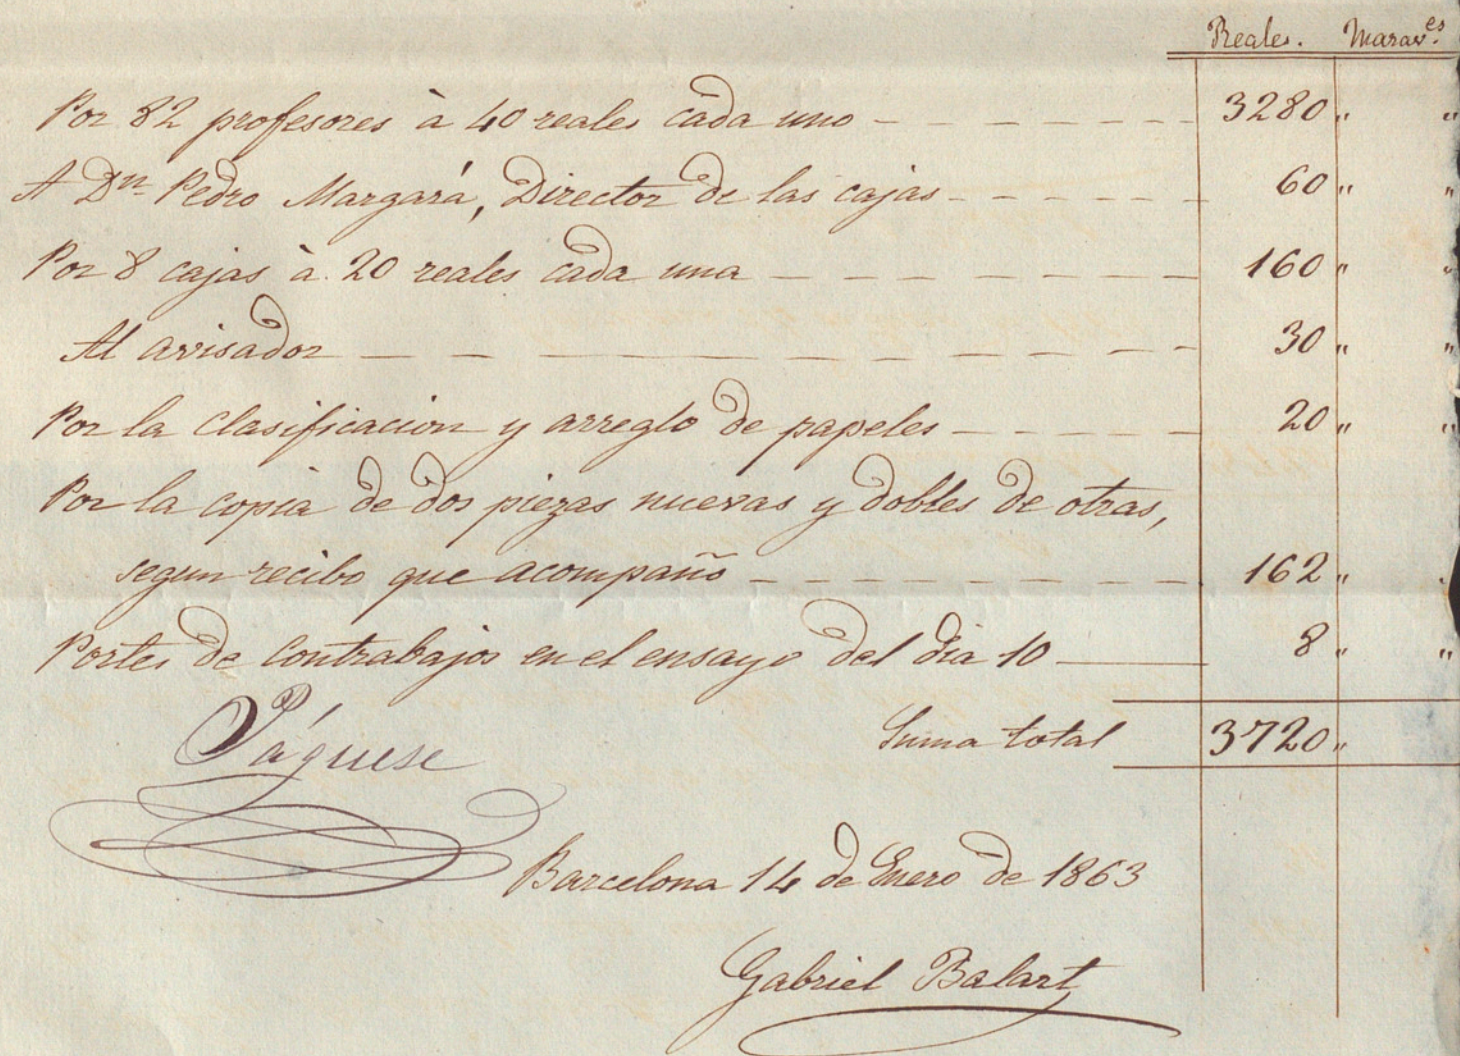 Reales. Marav.es
Por 82 profesores à 40 reales cada uno - - - - - - - - 3280 " "
A Dn. Pedro Margará, Director de las cajas - - - - - - 60 " "
Por 8 cajas à 20 reales cada una - - - - - - - 160 " "
Al avisador - - - - - - - - - - 30 " "
Por la clasificacion y arreglo de papeles - - - - - - 20 " "
Por la copia de dos piezas nuevas y dobles de otras,
segun recibo que acompaño - - - - - - - - - 162 " "
Portes de contrabajos en el ensayo del dia 10 — 8 " "
Suma total 3720 "
Páguese
Barcelona 14 de Enero de 1863
Gabriel Balart